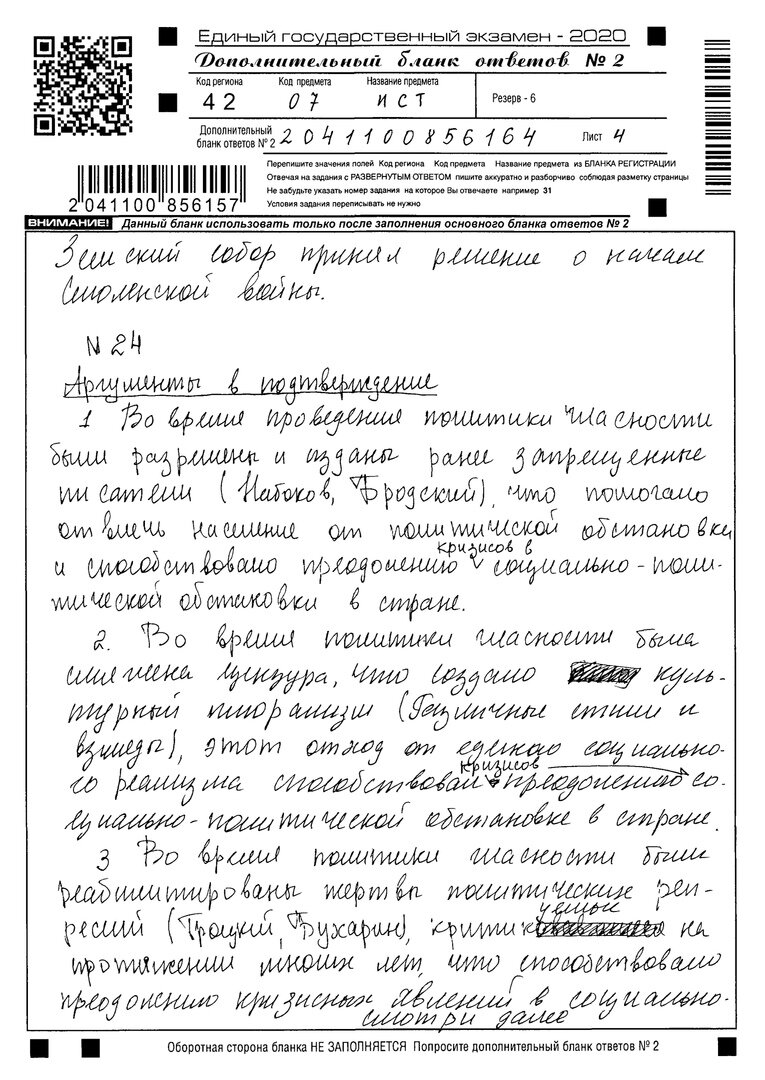 Единый государственный экзамен - 2020
Дополнительный бланк ответов № 2
Код региона Код предмета Название предмета
42 07 ИСТ Резерв - 6
Дополнительный бланк ответов № 2 2041100856164 Лист 4
Перепишите значения полей Код региона Код предмета Название предмета из БЛАНКА РЕГИСТРАЦИИ
Отвечая на задания с РАЗВЕРНУТЫМ ОТВЕТОМ пишите аккуратно и разборчиво соблюдая разметку страницы
Не забудьте указать номер задания на которое Вы отвечаете например 31
Условия задания переписывать не нужно
2 041100 856157
ВНИМАНИЕ! Данный бланк использовать только после заполнения основного бланка ответов № 2
Земский собор принял решение о начале
Смоленской войны.
N 24
Аргументы в подтверждение
1 Во время проведения политики гласности
были разрешены и изданы ранее запрещенные
писатели (Набоков, Бродский), что помогало
отвлечь население от политической обстановки
и способствовало преодолению кризисов в социально-поли-
тической обстановки в стране.
2. Во время политики гласности была
смягчена цензура, что создало куль-
турный плюрализм (Различные стили и
взгляды), этот отход от единого социально-
го реализма способствовал преодолению кризисов со-
циально-политической обстановке в стране.
3 Во время политики гласности были
реабилитированы жертвы политических реп-
рессий (Троцкий, Бухарин), критикуемых на
протяжении многих лет, что способствовало
преодолению кризисных явлений в социально-
смотри далее
Оборотная сторона бланка НЕ ЗАПОЛНЯЕТСЯ Попросите дополнительный бланк ответов № 2